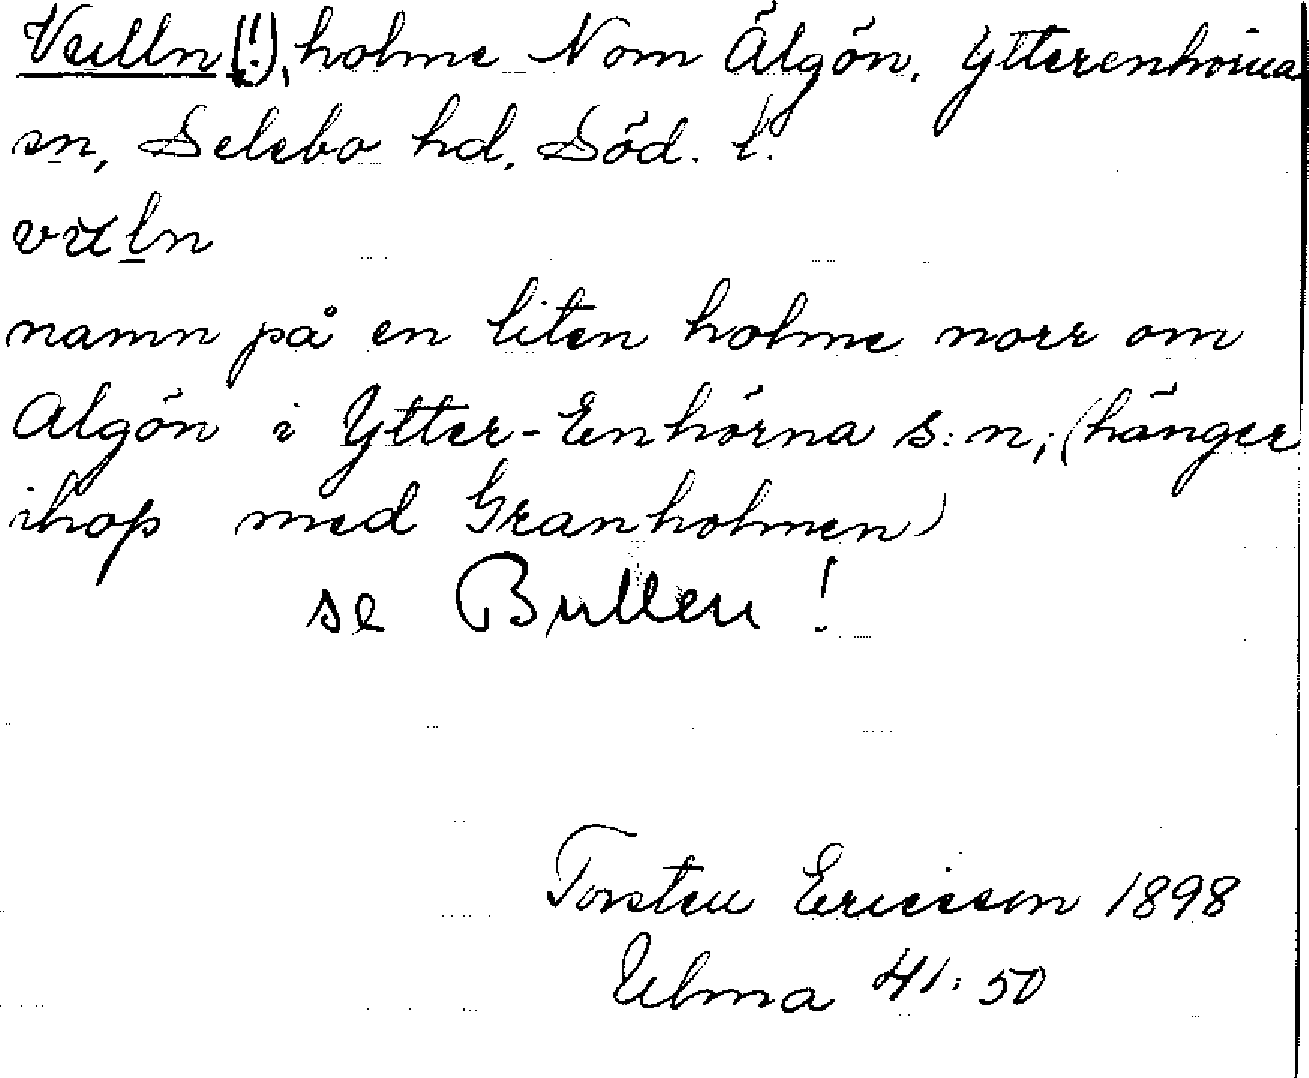 Vulln (!), holme N om Älgön, Ytterenhörna
sn, Selebo hd, Söd. l.
namn på en liten holme norr om
Älgön i Ytter-Enhörna s:n; (hänger
ihop med Granholmen)
se Bullen!
Torsten Ericsson 1898
Ulma 41:50